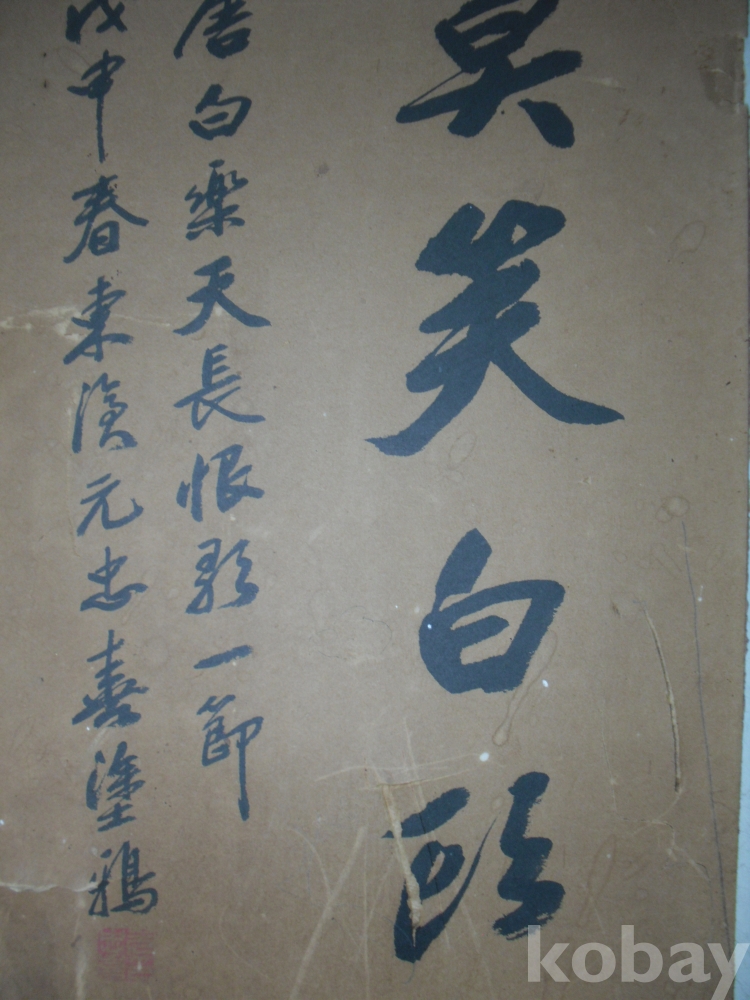 莫笑白頭
唐白樂天長恨歌一節
戊申春東元忠喜塗鴉
kobay